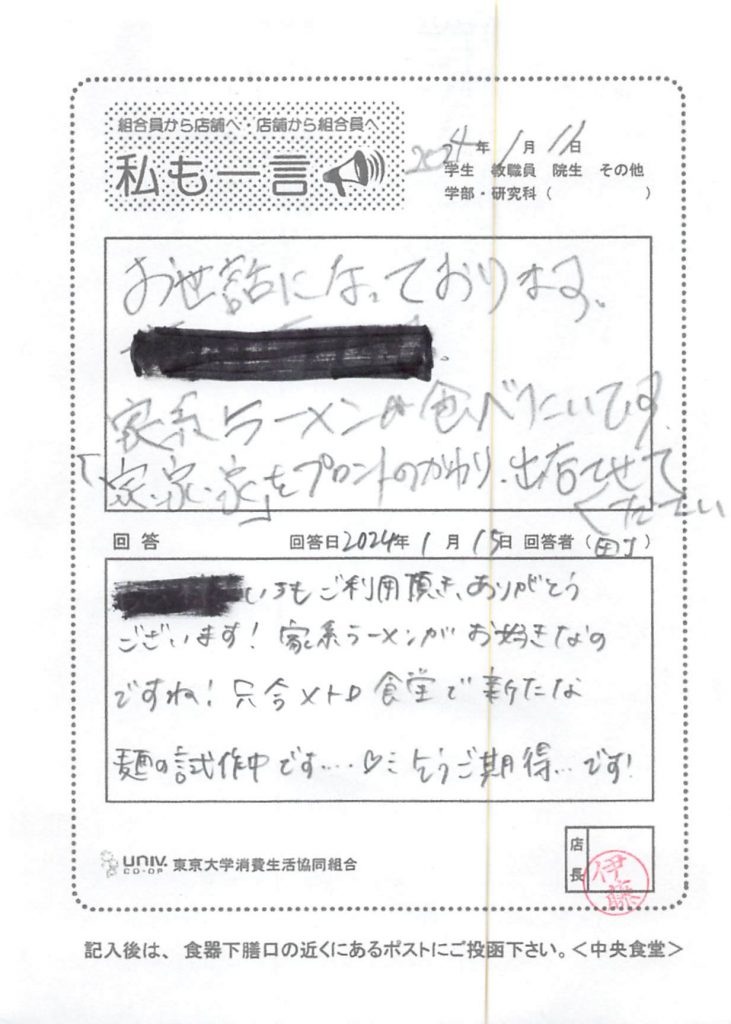 組合員から店舗へ・店舗から組合員へ
私も一言
2024年1月11日
学生 教職員 院生 その他
学部・研究科( )
お世話になっております。
家系ラーメンが食べたいです。
「家、家、家」をプロントのかわり、出店させて
ください
回答 回答日2024年1月15日 回答者( )
いつもご利用頂き、ありがとう
ございます! 家系ラーメンがお好きなの
ですね! 只今メトロ食堂で新たな
麺の試作中です....♡ こうご期待...です!
UNIV.
CO-OP 東京大学消費生活協同組合
店長
伊藤
記入後は、食器下膳口の近くにあるポストにご投函下さい。<中央食堂>